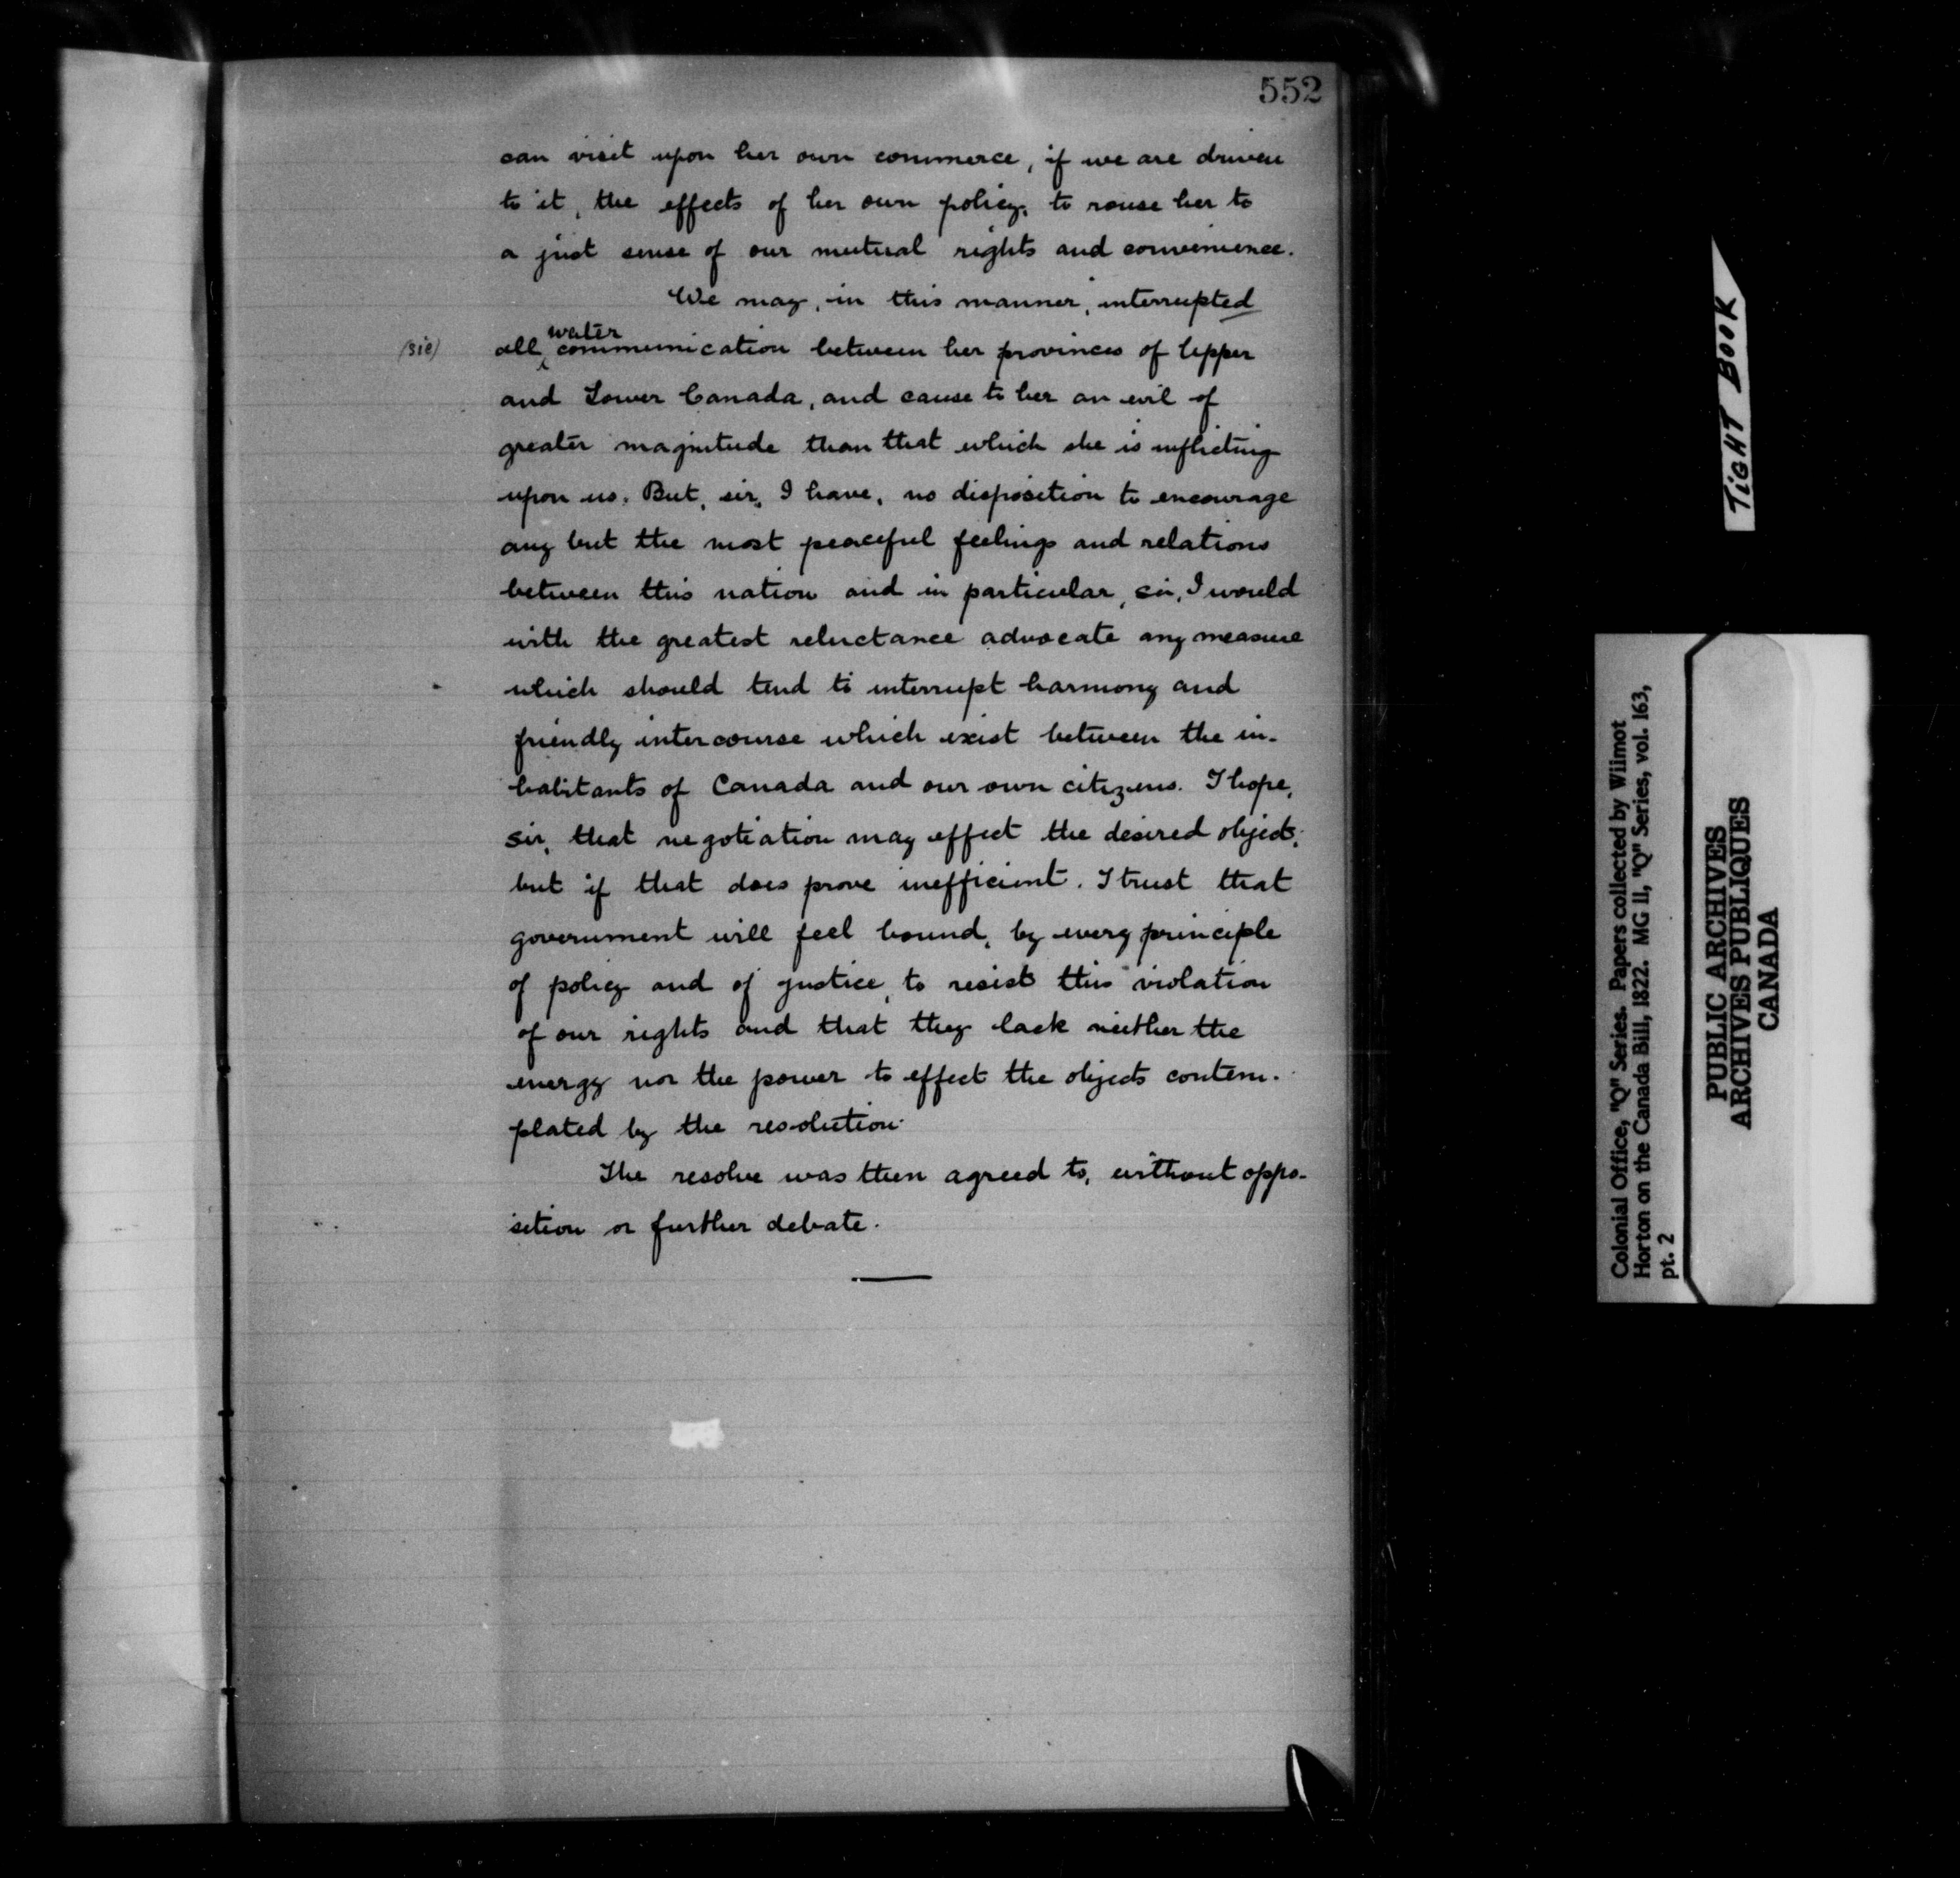 552
can visit upon her own commerce, if we are driven
to it, the effects of her own policy, to rouse her to
a just sense of our mutual rights and convenience.
We may, in this manner, interrupted
water
(sic) all communication between her provinces of Upper
and Lower Canada, and cause to her an evil of
greater magnitude than that which she is inflicting
upon us. But, sir, I have, no disposition to encourage
any but the most peaceful feelings and relations
between this nation and in particular, sir, I would
with the greatest reluctance advocate any measure
which should tend to interrupt harmony and
friendly intercourse which exist between the in-
habitants of Canada and our own citizens. I hope,
sir, that negotiation may effect the desired object;
but if that does prove inefficient. I trust that
government will feel bound, by every principle
of policy and of justice, to resist this violation
of our rights and that they lack neither the
energy nor the power to effect the objects contem-
plated by the resolution.
The resolve was then agreed to, without oppo-
sition or further debate.
TIGHT BOOK
Colonial Office, "Q" Series. Papers collected by Wilmot
Horton on the Canada Bill, 1822. MG 11, "Q" Series, vol. 163,
pt. 2
PUBLIC ARCHIVES
ARCHIVES PUBLIQUES
CANADA